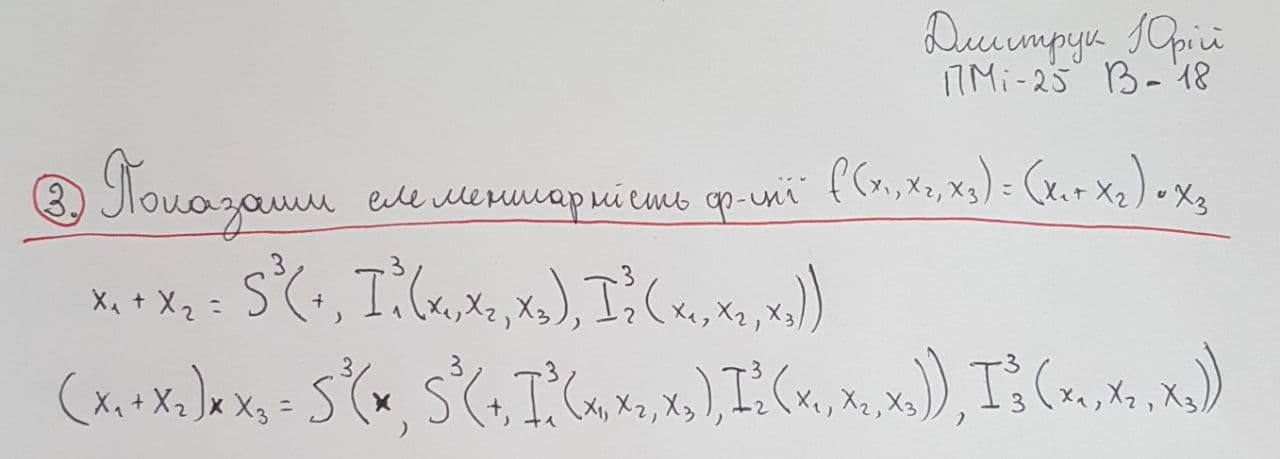 Дмитрук Юрій
ПМі-25 В-18
3. Показати елементарність ф-ції f(x₁, x₂, x₃) = (x₁ + x₂) • x₃
x₁ + x₂ = S³(+, I³₁(x₁, x₂, x₃), I³₂(x₁, x₂, x₃))
(x₁ + x₂) × x₃ = S³(×, S³(+, I³₁(x₁, x₂, x₃), I³₂(x₁, x₂, x₃)), I³₃(x₁, x₂, x₃))